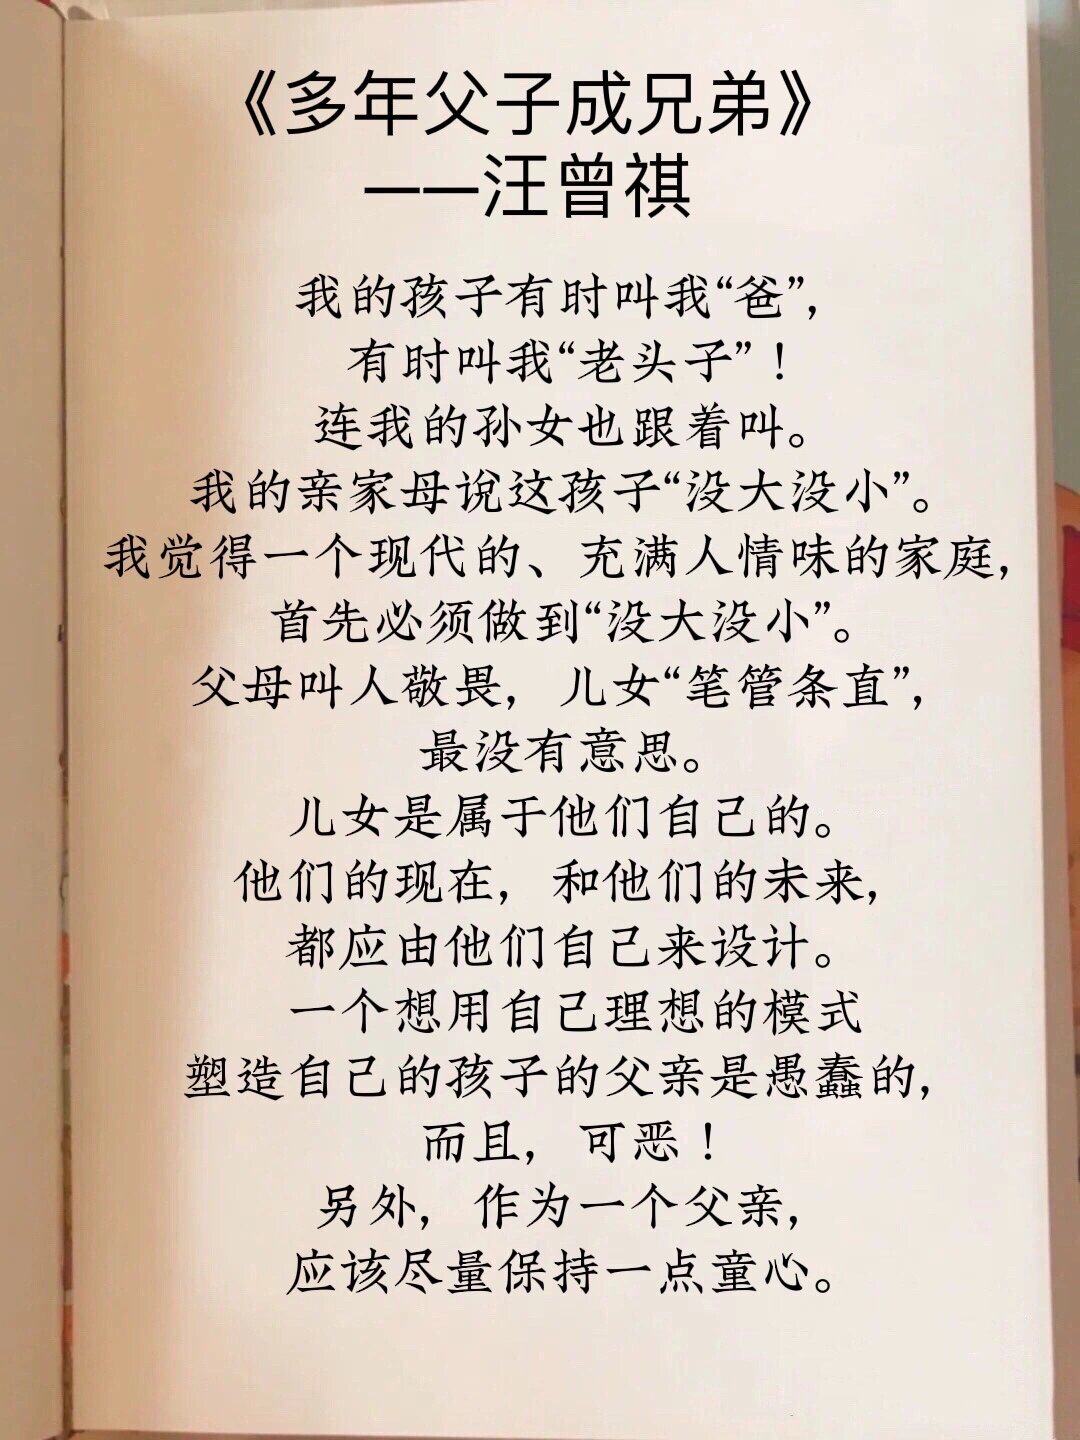 《多年父子成兄弟》
——汪曾祺
我的孩子有时叫我“爸”，
有时叫我“老头子”！
连我的孙女也跟着叫。
我的亲家母说这孩子“没大没小”。
我觉得一个现代的、充满人情味的家庭，
首先必须做到“没大没小”。
父母叫人敬畏，儿女“笔管条直”，
最没有意思。
儿女是属于他们自己的。
他们的现在，和他们的未来，
都应由他们自己来设计。
一个想用自己理想的模式
塑造自己的孩子的父亲是愚蠢的，
而且，可恶！
另外，作为一个父亲，
应该尽量保持一点童心。